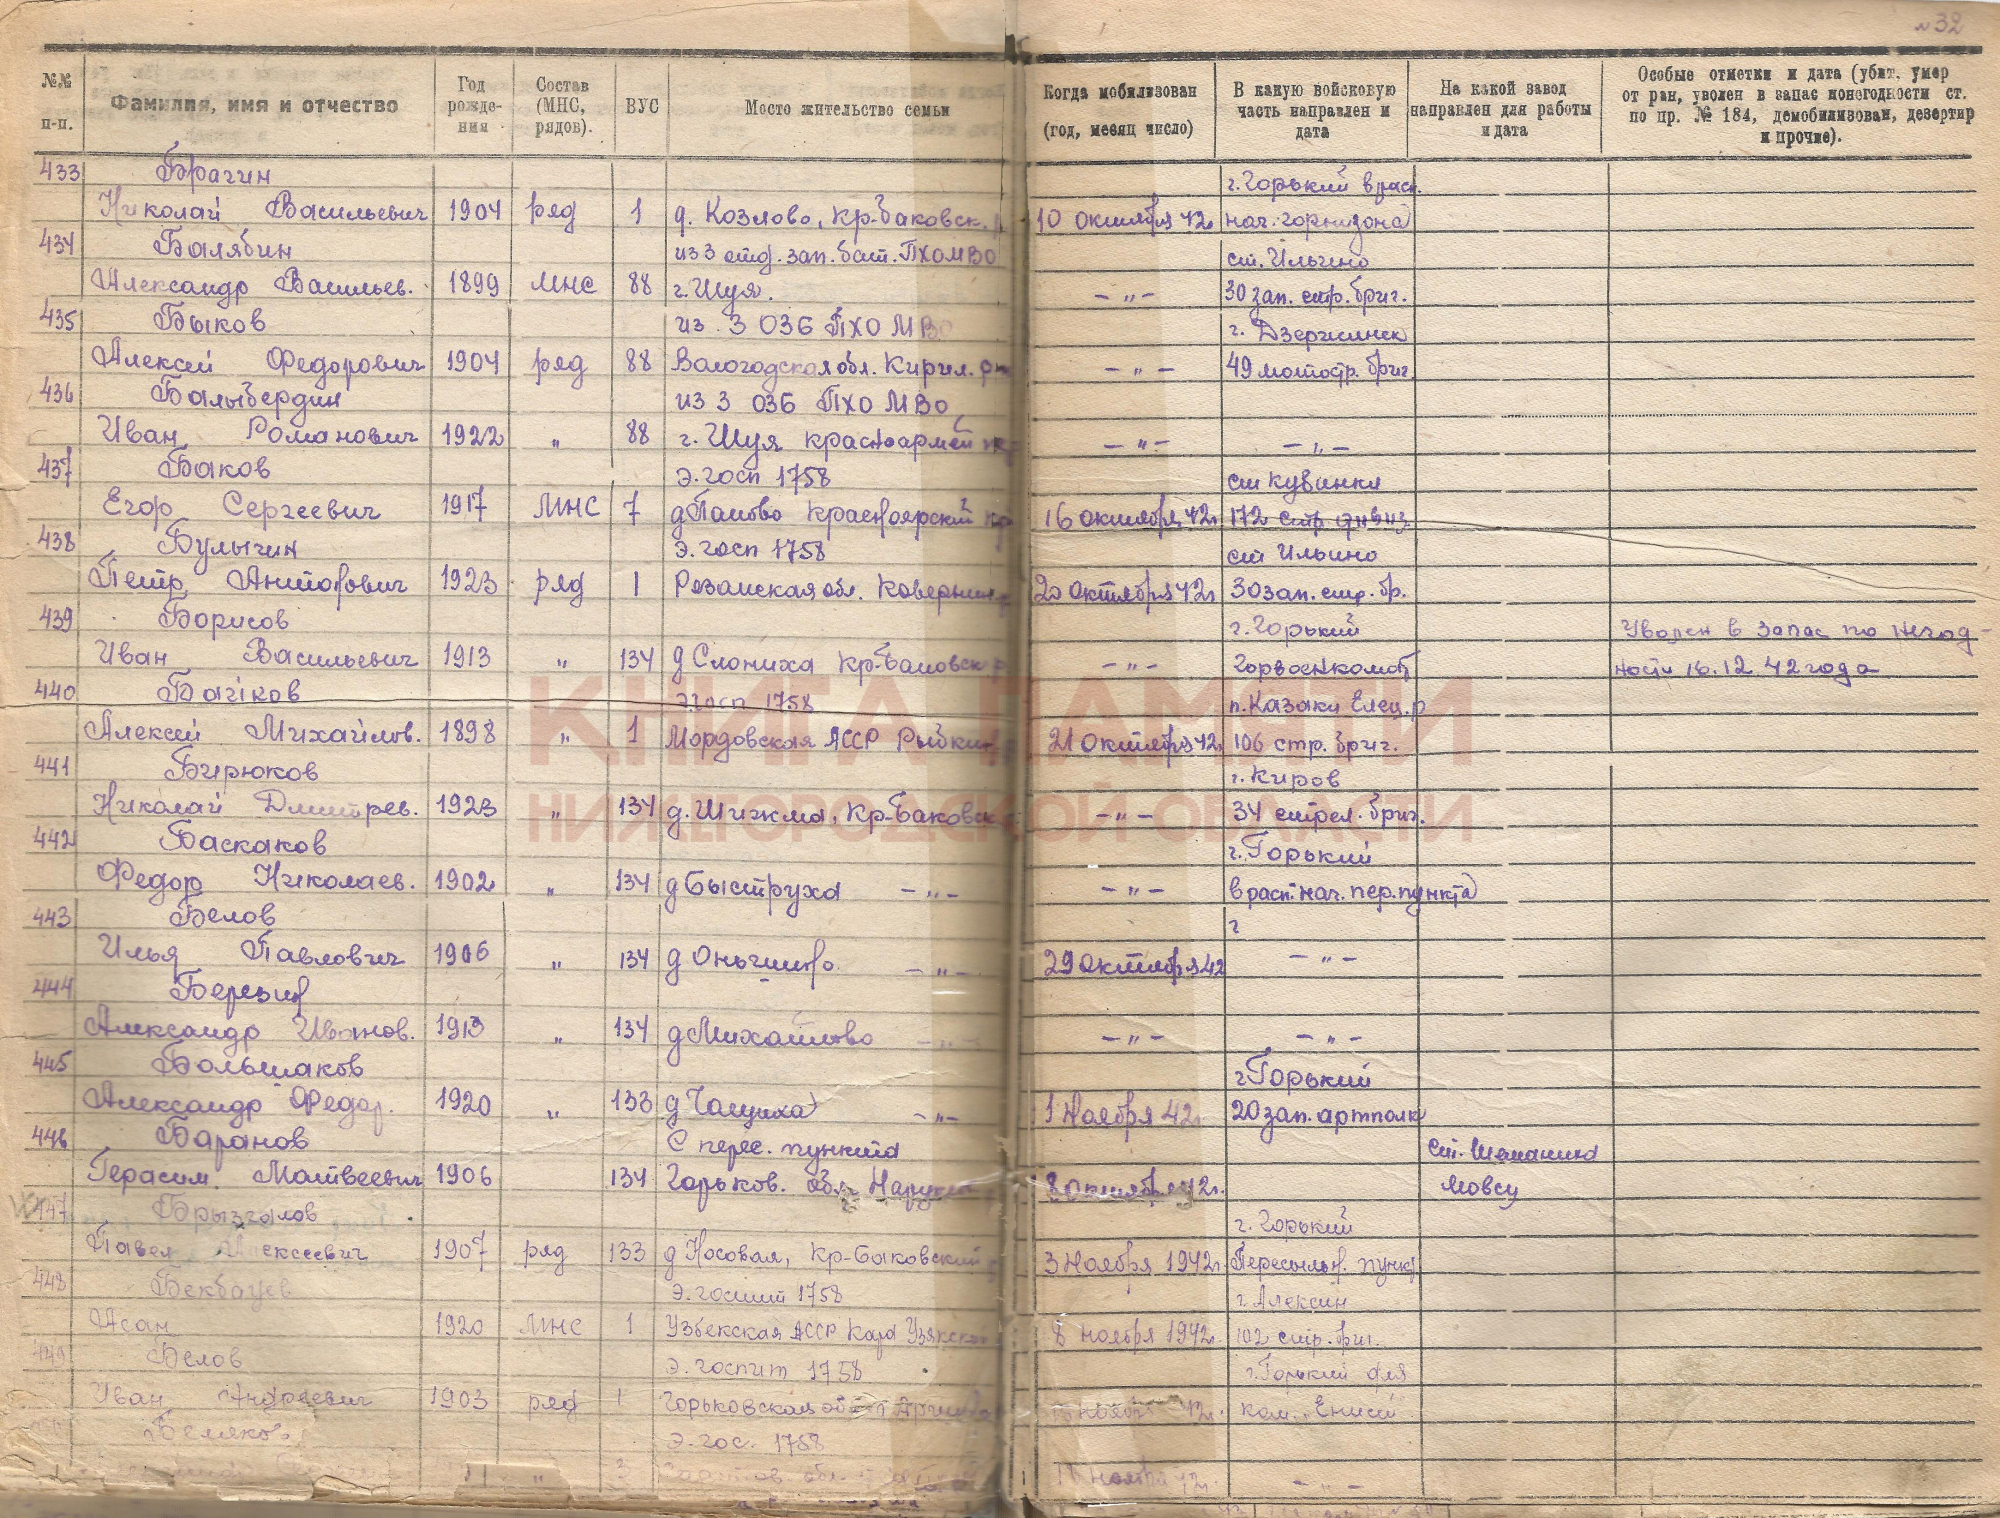 № 32
№№ п-п. Фамилия, имя и отчество Год рожде-ния Состав (МНС, рядов). ВУС Место жительство семьи Когда мобилизован (год, месяц число) В какую войсковую часть направлен и дата На какой завод направлен для работы и дата Особые отметки и дата (убит, умер от ран, уволен в запас понегодности ст. по пр. № 184, демобилизован, дезертир и прочие).
433 Брагин г. Горький в расп.
Николай Васильевич 1904 ряд 1 д. Козлово, Кр-Баковск. 10 октября 42г. нач. горнизона
434 Балябин из 3 отд. зап. бат. ПХО МВО ст. Ильино
Александр Васильев. 1899 МНС 88 г. Шуя. – „ – 30 зап. стр. бриг.
435 Быков из 3 ОЗБ ПХО МВО г. Дзержинск
Алексей Федорович 1904 ряд 88 Вологодская обл. Кирил. 49 мотостр. бриг.
– „ –
436 Балыбердин из 3 ОЗБ ПХО МВО
Иван Романович 1922 „ 88 г. Шуя – „ – – „ –
437 Баков э. госп 1758 ст Кувинка
Егор Сергеевич 1917 МНС 7 Красноярский 16 октября 42г 172 стр.
438 Булыгин э. госп 1758 ст Ильино
Петр 1923 ряд 1 20 октября 42г 30 зап. стр. бр.
439 Борисов г. Горький Уволен в запас по негод-
Иван Васильевич 1913 „ 134 д Слониха – „ – Горвоенкомат ности 16.12 42 года
440 э. госп 1758 п. Казаки Елец. р
Алексей Михайлов. 1898 „ 1 Мордовская АССР 21 октября 42г 106 стр. бриг.
441 Бирюков г. Киров
Николай Дмитрев. 1923 „ 134 д. Шижма, Кр-Баковск – „ – 34 стрел. бриг.
442 Баскаков г. Горький
Федор Николаев. 1902 „ 134 д Быструха – „ – – „ – в расп. нач. пер. пункта
443 Белов г
Илья Павлович 1906 „ 134 д – „ – 29 октября 42 – „ –
444 Березин
Александр Иванов. 1913 „ 134 д Михайлово – „ – – „ – – „ –
445 Большаков г Горький
Александр Федор. 1920 „ 133 д – „ – 1 Ноября 42г 20 зап. артполк
446 Баранов С перес. пункта ст. Шеманиха
Герасим. Матвеевич 1906 134 Горьков. обл. 8 октября 42г. Мовсу
447 Брызгалов г. Горький
Павел Алексеевич 1907 ряд 133 д Носовая, Кр-Баковский 3 Ноября 1942г. Пересыльн. пункт
448 Бекбауев э. госпит 1758 г Алексин
Асан 1920 МНС 1 Узбекская АССР 8 ноября 1942г. 102 стр. бриг.
449 Белов э. госпит 1758 г. Горький для
Иван Андреевич 1903 ряд 1 Горьковская ноября 42г. ком. Енисей
Беляков э. гос. 1758
ноября 42г. – „ –
КНИГА ПАМЯТИ
НИЖЕГОРОДСКОЙ ОБЛАСТИ